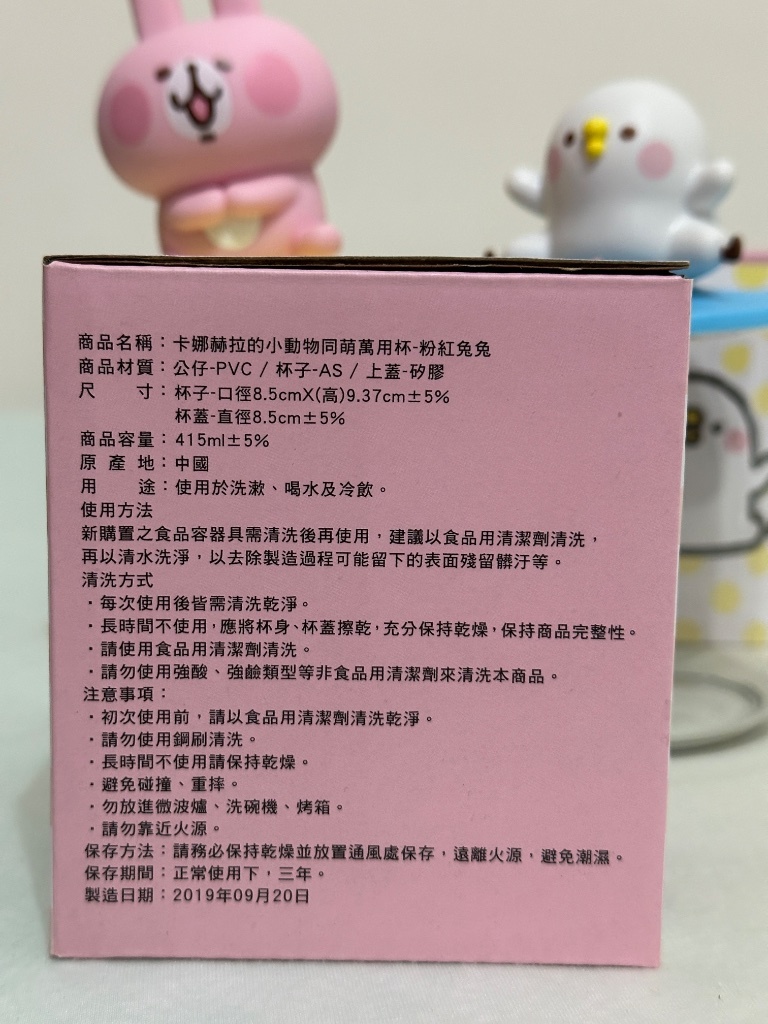 商品名稱：卡娜赫拉的小動物同萌萬用杯-粉紅兔兔
商品材質：公仔-PVC / 杯子-AS / 上蓋-矽膠
尺　　寸：杯子-口徑8.5cmX(高)9.37cm±5%
杯蓋-直徑8.5cm±5%
商品容量：415ml±5%
原 產 地：中國
用　　途：使用於洗漱、喝水及冷飲。
使用方法
新購置之食品容器具需清洗後再使用，建議以食品用清潔劑清洗，
再以清水洗淨，以去除製造過程可能留下的表面殘留髒汙等。
清洗方式
・每次使用後皆需清洗乾淨。
・長時間不使用，應將杯身、杯蓋擦乾，充分保持乾燥，保持商品完整性。
・請使用食品用清潔劑清洗。
・請勿使用強酸、強鹼類型等非食品用清潔劑來清洗本商品。
注意事項：
・初次使用前，請以食品用清潔劑清洗乾淨。
・請勿使用鋼刷清洗。
・長時間不使用請保持乾燥。
・避免碰撞、重摔。
・勿放進微波爐、洗碗機、烤箱。
・請勿靠近火源。
保存方法：請務必保持乾燥並放置通風處保存，遠離火源，避免潮濕。
保存期間：正常使用下，三年。
製造日期：2019年09月20日